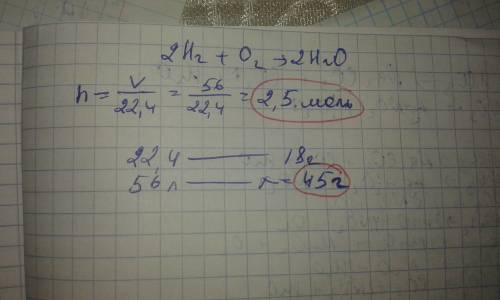 2H₂ + O₂ → 2H₂O
n = V/22,4 = 56/22,4 = 2,5 моль
22,4 —— 18г
56л —— x = 45г